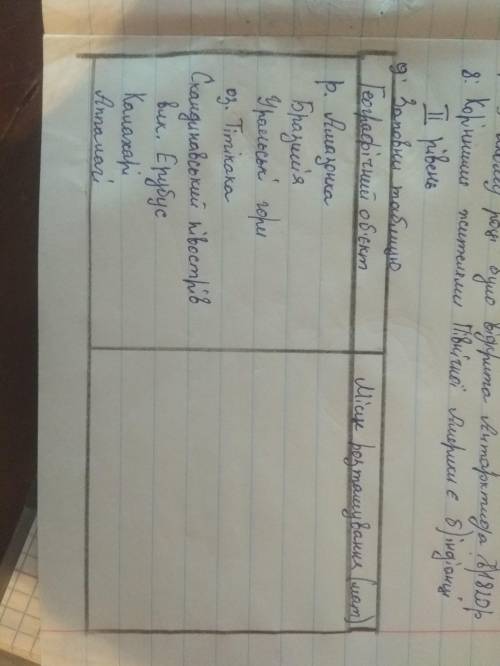 році було відкрита Антарктида в) 1820 р
8. Корінними жителями Північної Америки є б) індіанці
II рівень
9. Заповни таблицю
Географічний об'єкт
Місце розташування (мат)
р. Амазонка
Бразилія
Уральські гори
оз. Тітікака
Скандинавський півострів
вул. Еребус
Калахарі
Аппалачі